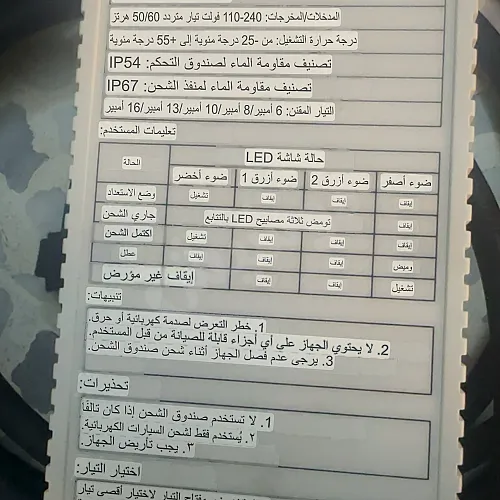 المدخلات/المخرجات: 240-110 فولت تيار متردد 50/60 هرتز
درجة حرارة التشغيل: من -25 درجة مئوية إلى +55 درجة مئوية
تصنيف مقاومة الماء لصندوق التحكم: IP54
تصنيف مقاومة الماء لمنفذ الشحن: IP67
التيار المقنن: 6 أمبير/8 أمبير/10 أمبير/13 أمبير/16 أمبير
تعليمات المستخدم:
الحالة حالة شاشة LED
ضوء أخضر ضوء أزرق 1 ضوء أزرق 2 ضوء أصفر
وضع الاستعداد تشغيل إيقاف إيقاف إيقاف
جاري الشحن تومض ثلاثة مصابيح LED بالتتابع إيقاف
اكتمل الشحن تشغيل إيقاف إيقاف إيقاف
عطل إيقاف إيقاف إيقاف وميض
إيقاف غير مؤرض إيقاف إيقاف تشغيل
تنبيهات:
1. خطر التعرض لصدمة كهربائية أو حرق.
2. لا يحتوي الجهاز على أي أجزاء قابلة للصيانة من قبل المستخدم.
3. يرجى عدم فصل الجهاز أثناء شحن صندوق الشحن.
تحذيرات:
1. لا تستخدم صندوق الشحن إذا كان تالفًا
٢. يُستخدم فقط لشحن السيارات الكهربائية.
٣. يجب تأريض الجهاز.
اختيار التيار:
مفتاح التيار لاختيار أقصى تيار